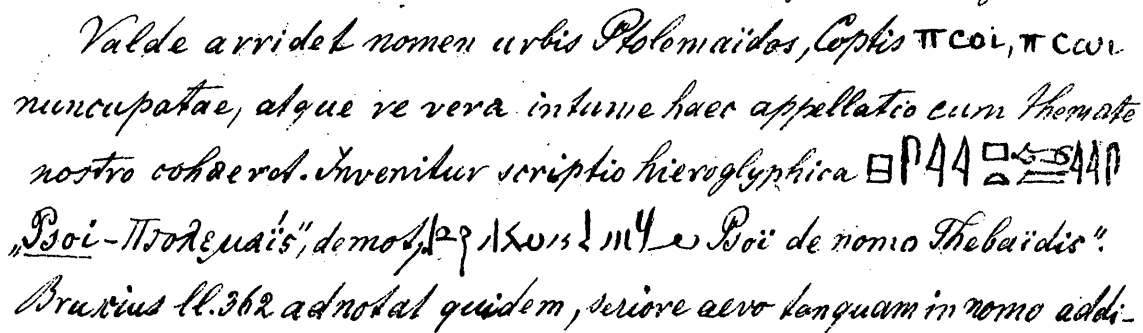 Valde arridet nomen urbis Ptolemaïdos, Coptis ⲡⲥⲟⲓ, ⲡⲥⲱⲓ
nuncupatae, atque re vera intume haec appellatio cum themate
nostro cohaeret. Invenitur scriptio hieroglyphica
„Psoi-Πτολεμαΐς", demot. Psoï de nomo Thebaïdis".
Bruxius ll. 362 adnotat quidem, seriore aevo tanquam in nomo addi-